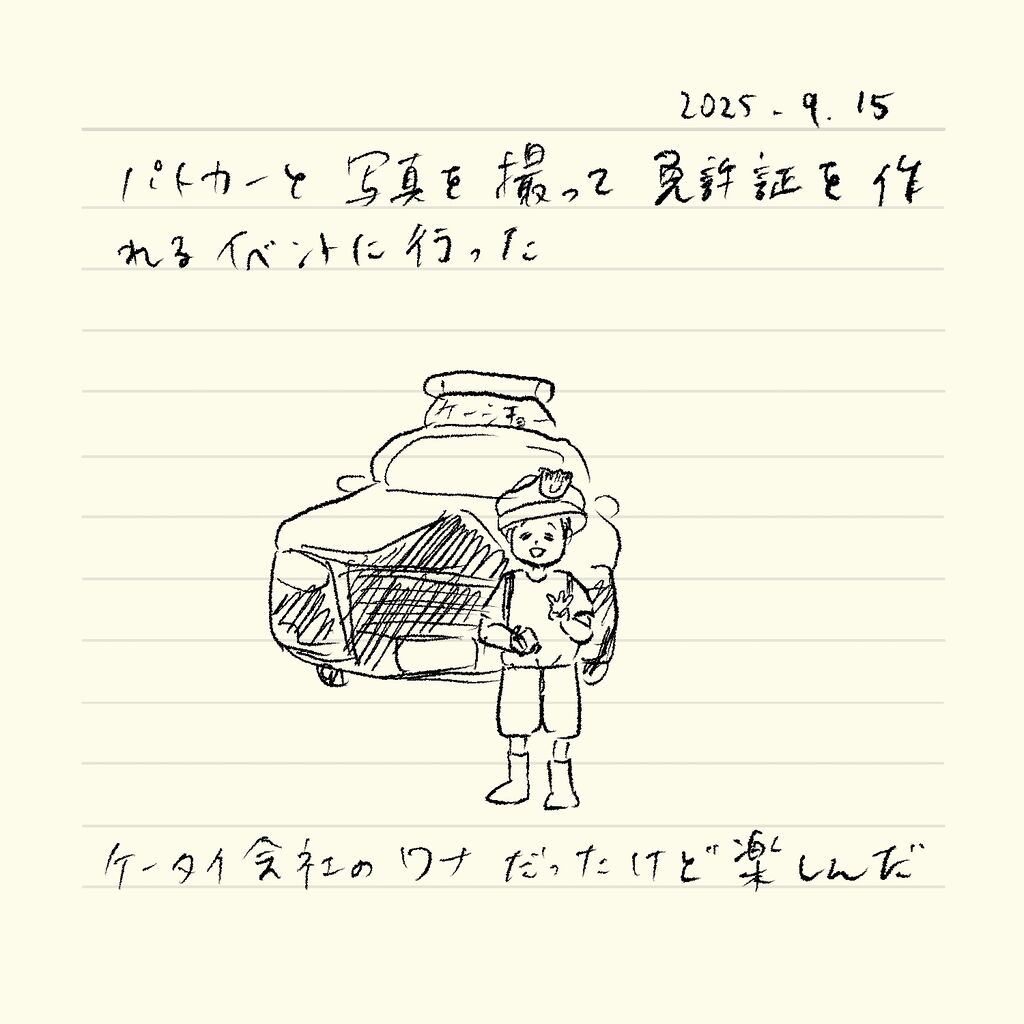 2025.9.15
パトカーと写真を撮って免許証を作
れるイベントに行った
ケーシチョー
ケータイ会社のワナだったけど楽しんだ